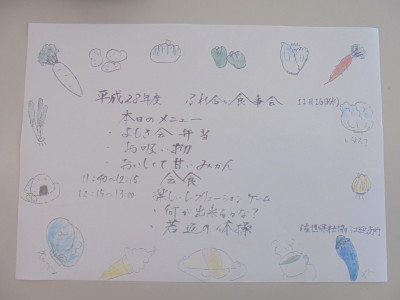 平成28年度 ふれ合い食事会
本日のメニュー
・よもぎ会 弁当
・お吸い物
・おいしくて甘いみかん
11:40~12:15 会食
12:15~13:00 楽しいレクリエーションゲーム
・何が出来るかな?
・若返り体操